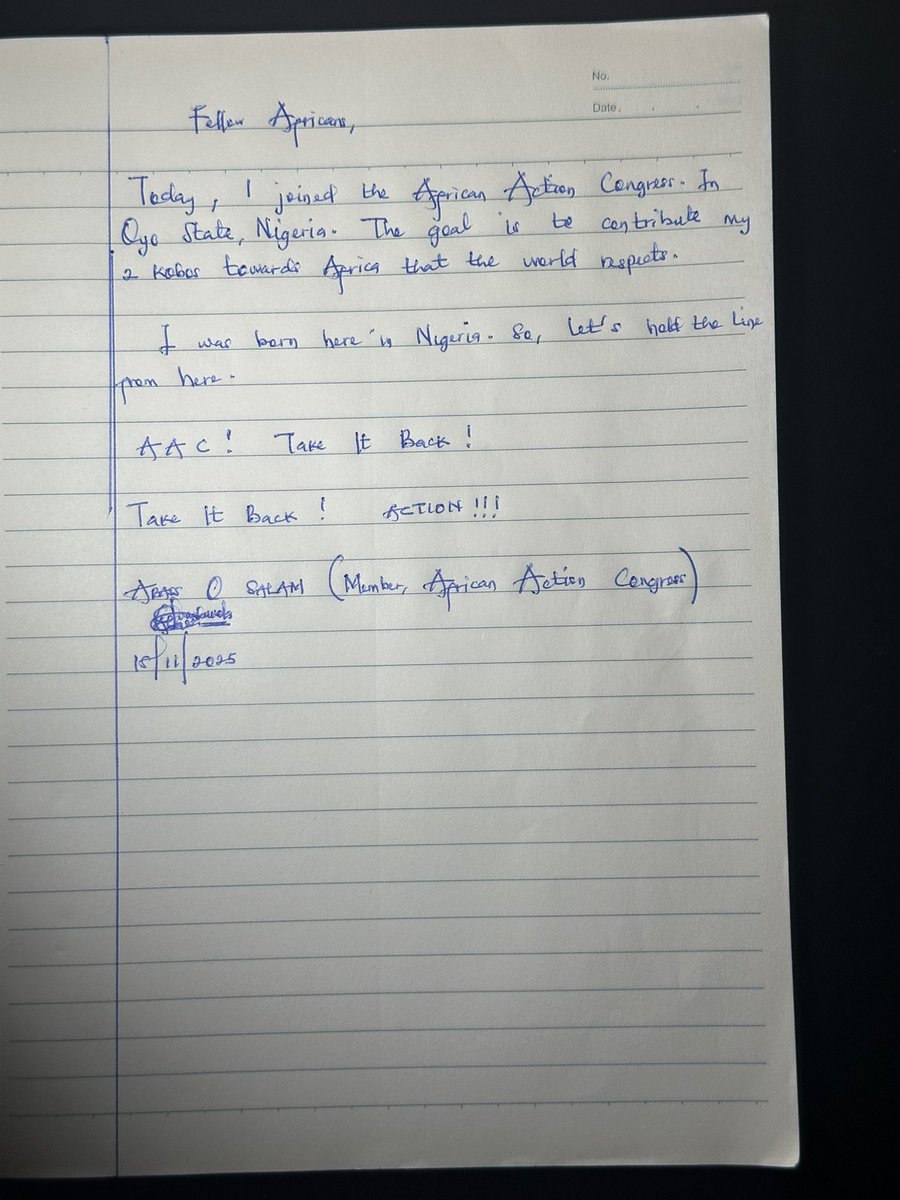 No.
Date.
Fellow Africans,
Today, I joined the African Action Congress. In
Oyo State, Nigeria. The goal is to contribute my
2 kobos towards Africa that the world respects.
I was born here in Nigeria. So, let's hold the line
from here.
AAC! Take It Back!
Take It Back! ACTION!!!
ABASS O SALAM (Member, African Action Congress)
18/11/2025